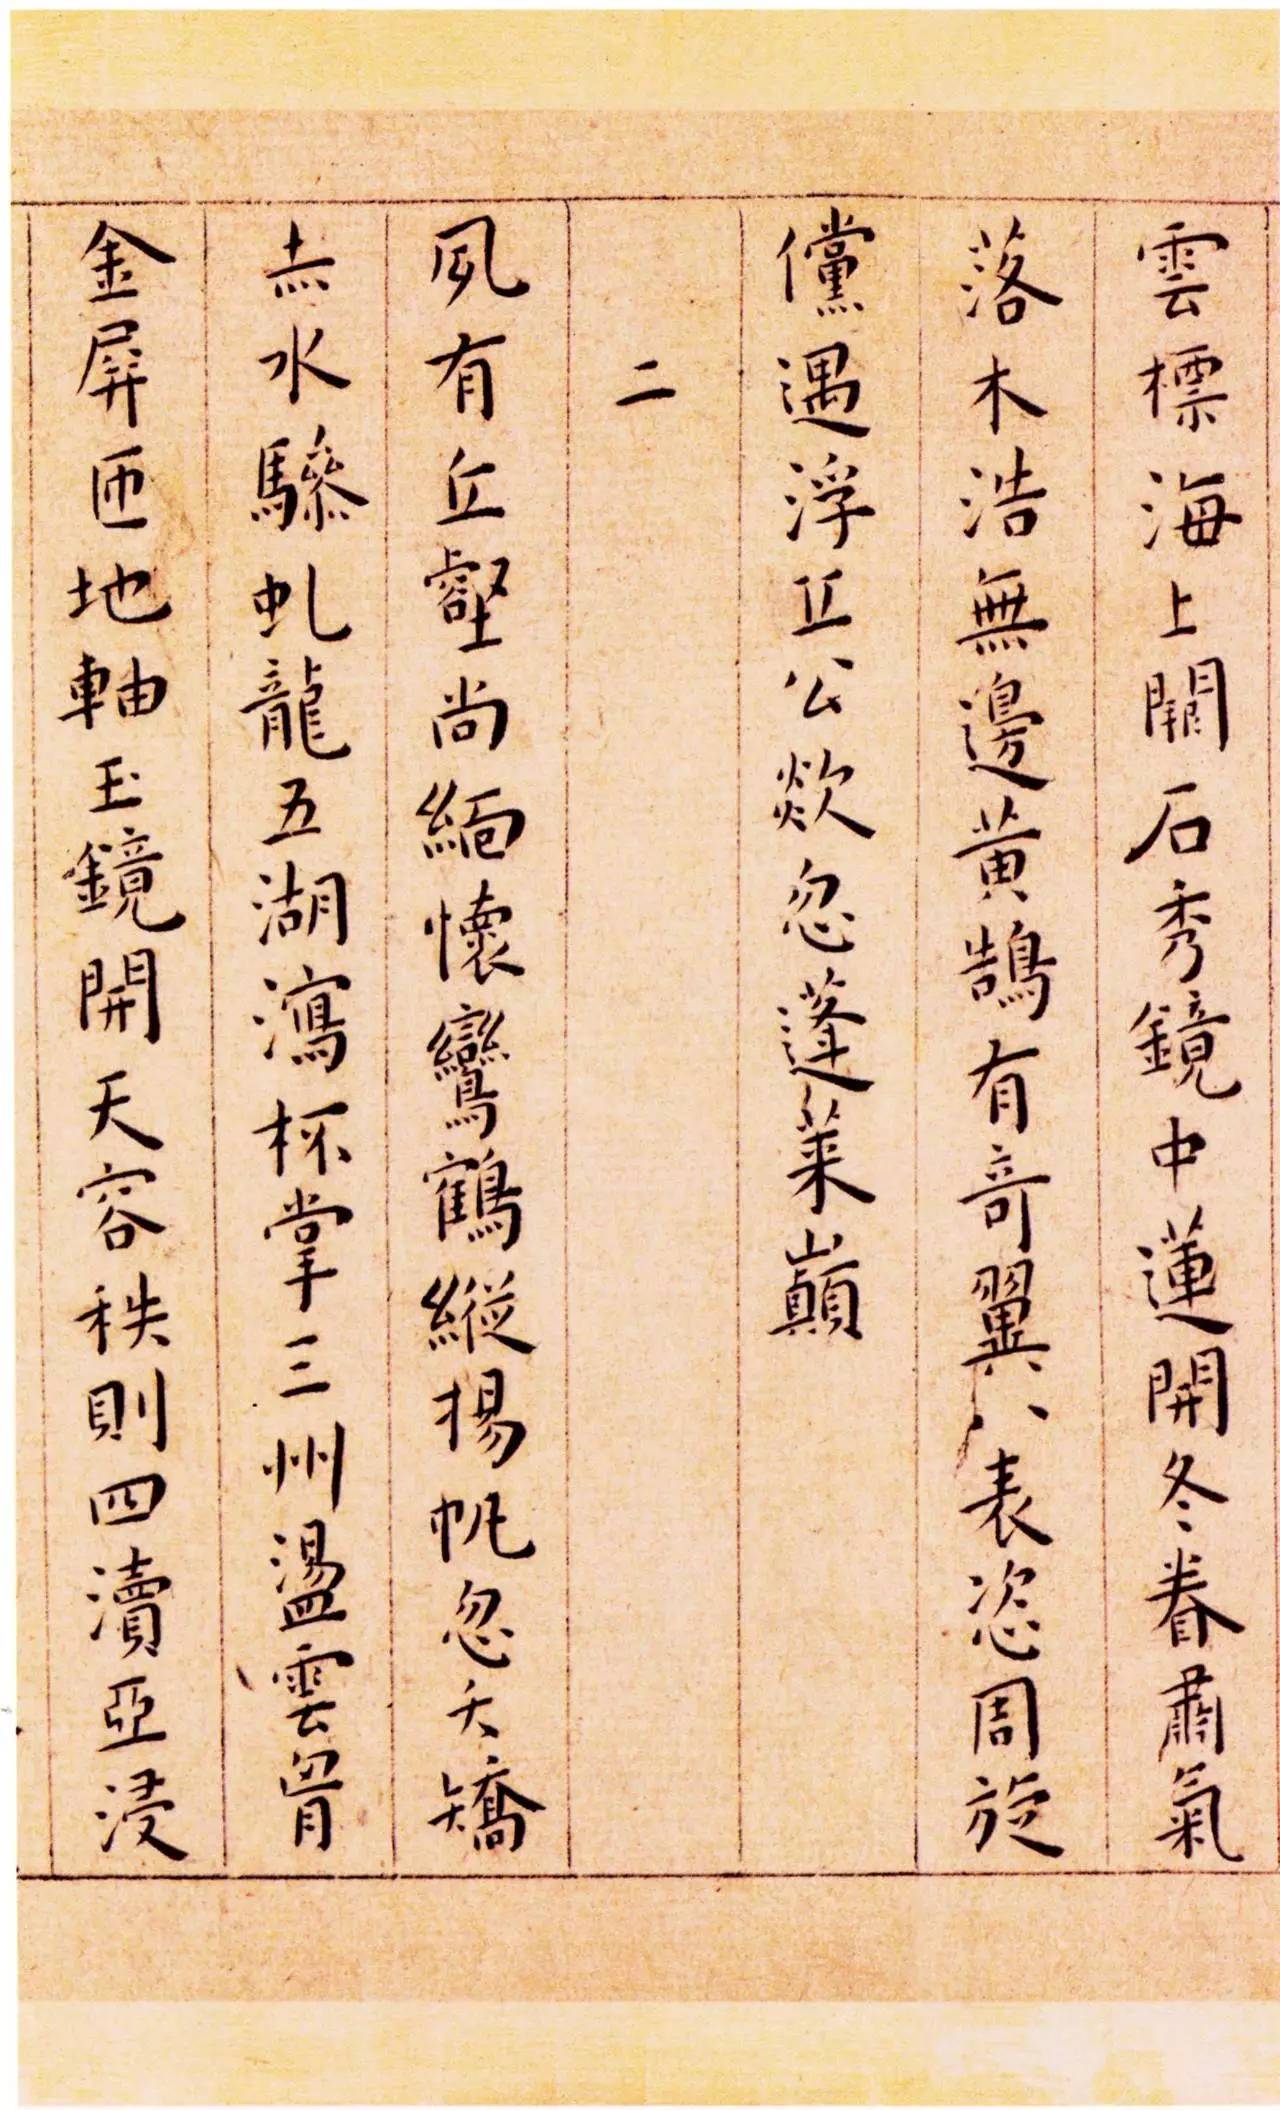 雲標海上闢石秀鏡中蓮開冬眷肅氣
落木浩無邊黃鵠有奇翼八表恣周旋
儻遇浮丘公欻忽蓬萊巔
二
夙有丘壑尚緬懷鸞鶴縱揚帆忽夭矯
赤水驂虬龍五湖瀉杯掌三州盪雲胷
金屏匝地軸玉鏡開天容秩則四瀆亞浸